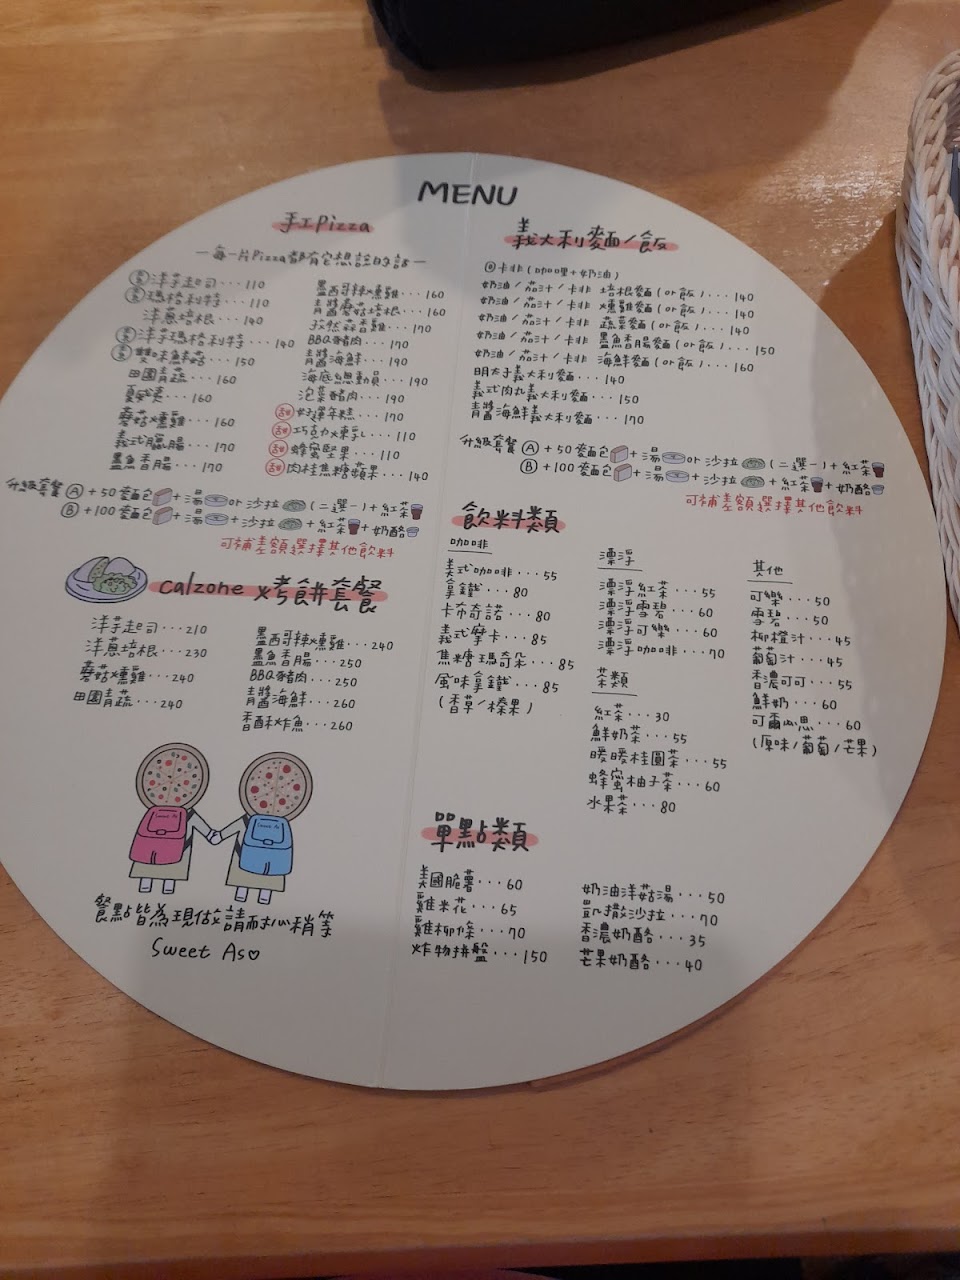 MENU
手工Pizza
—每一片Pizza都有它想說的話—
洋芋起司...110
瑪格利特...110
洋蔥培根...140
洋芋瑪格利特...140
雙味鮮菇...150
田園青蔬...160
夏威夷...160
蘑菇燻雞...160
義式臘腸...170
墨魚香腸...170
墨西哥辣燻雞...160
青醬蘑菇培根...160
孜然蒜香雞...170
BBQ豬肉...170
青醬海鮮...190
海底總動員...190
泡菜豬肉...190
甜 好彈年糕...170
甜 巧克力煉乳...110
甜 蜂蜜堅果...110
甜 肉桂焦糖蘋果...140
升級套餐 A +50 麵包+湯or沙拉(二選一)+紅茶
B +100麵包+湯+沙拉+紅茶+奶酪
可補差額選擇其他飲料
calzone 烤餅套餐
洋芋起司...210
洋蔥培根...230
蘑菇燻雞...240
田園青蔬...240
墨西哥辣燻雞...240
墨魚香腸...250
BBQ豬肉...250
青醬海鮮...260
香酥炸魚...260
餐點皆為現做請耐心稍等
Sweet As♡
義大利麵/飯
卡非(咖哩+奶油)
奶油/茄汁/卡非 培根麵(or飯)...140
奶油/茄汁/卡非 燻雞麵(or飯)...140
奶油/茄汁/卡非 蔬菜麵(or飯)...140
奶油/茄汁/卡非 墨魚香腸麵(or飯)...150
奶油/茄汁/卡非 海鮮麵(or飯)...160
明太子義大利麵...140
義式肉丸義大利麵...150
青醬海鮮義大利麵...170
升級套餐 A +50麵包+湯or沙拉(二選一)+紅茶
B +100麵包+湯+沙拉+紅茶+奶酪
可補差額選擇其他飲料
飲料類
咖啡
義式咖啡...55
拿鐵...80
卡布奇諾...80
義式摩卡...85
焦糖瑪奇朵...85
風味拿鐵...85
(香草/榛果)
漂浮
漂浮紅茶...55
漂浮雪碧...60
漂浮可樂...60
漂浮咖啡...70
茶類
紅茶...30
鮮奶茶...55
暖暖桂圓茶...55
蜂蜜柚子茶...60
水果茶...80
其他
可樂...50
雪碧...50
柳橙汁...45
葡萄汁...45
香濃可可...55
鮮奶...60
可爾必思...60
(原味/葡萄/芒果)
單點類
美國脆薯...60
雞米花...65
雞柳條...70
炸物拼盤...150
奶油洋菇湯...50
凱撒沙拉...70
香濃奶酪...35
芒果奶酪...40